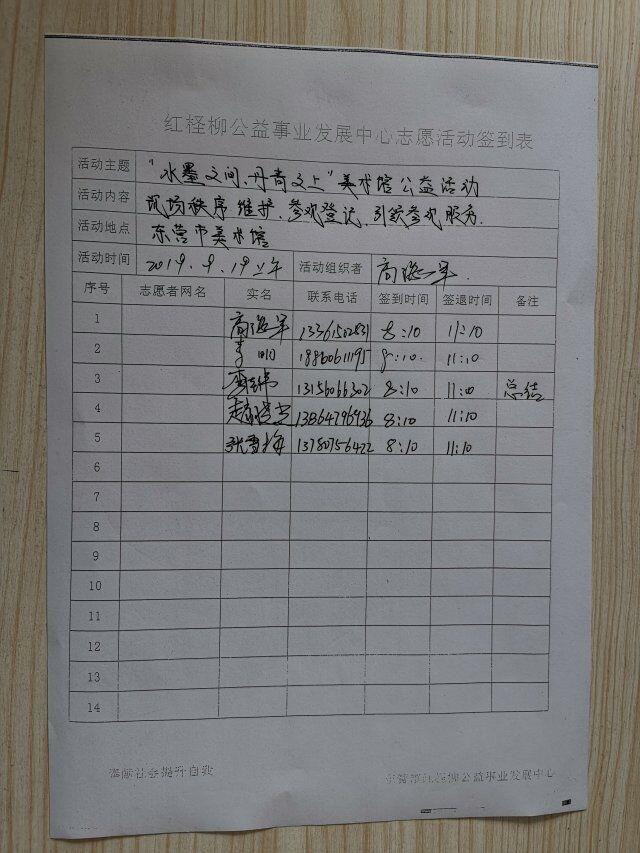 红柽柳公益事业发展中心志愿活动签到表
活动主题 "水墨之间、丹青之上"美术馆公益活动
活动内容 现场秩序维护、参观登记、引领参观服务.
活动地点 东营市美术馆
活动时间 2019.9.19上午 活动组织者
序号 志愿者网名 实名 联系电话 签到时间 签退时间 备注
1 8:10 11:10
2 李 18860611195 8:10. 11:10
3 13156066302 8:10 总结
4 13864796936 8:10 11:10
5 张雪梅 13780756422 8:10 11:10
6
7
8
9
10
11
12
13
14
奉献社会提升自我 东营市红柽柳公益事业发展中心